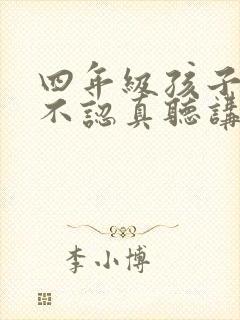 四年級孩子
不認真聽講
李小博